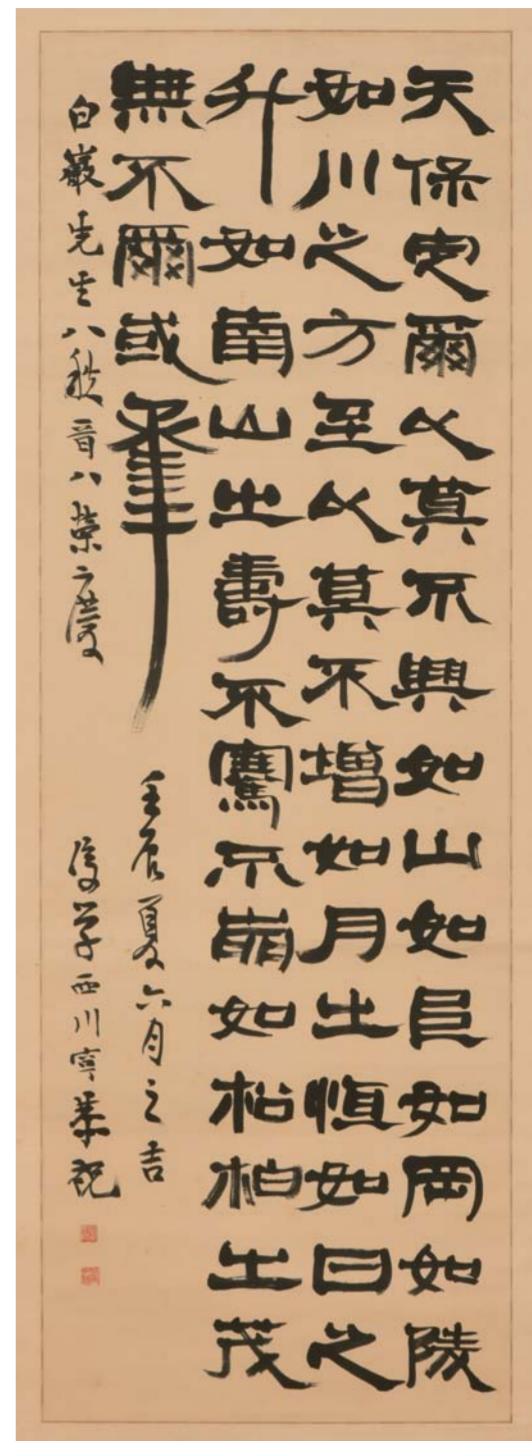 天保定爾以莫不興如山如阜如岡如陵
如川之方至以莫不增如月之恒如日之
升如南山之壽不騫不崩如松柏之茂
無不爾或承
壬辰夏六月之吉
白巖先生八秩晉八榮之慶
後學西川寧恭祝